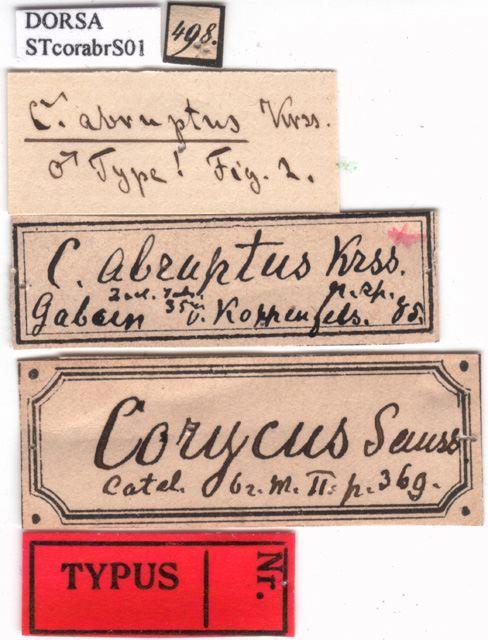 DORSA
STcorabrS01
498.
C. abruptus Krss.
♂ Type! Fig. 2.
C. abruptus Krss.
n. sp.
Gabun v. Koppenfels. 85.
Corycus Sauss
Catal. br. M. II. p. 369.
TYPUS
Nr.